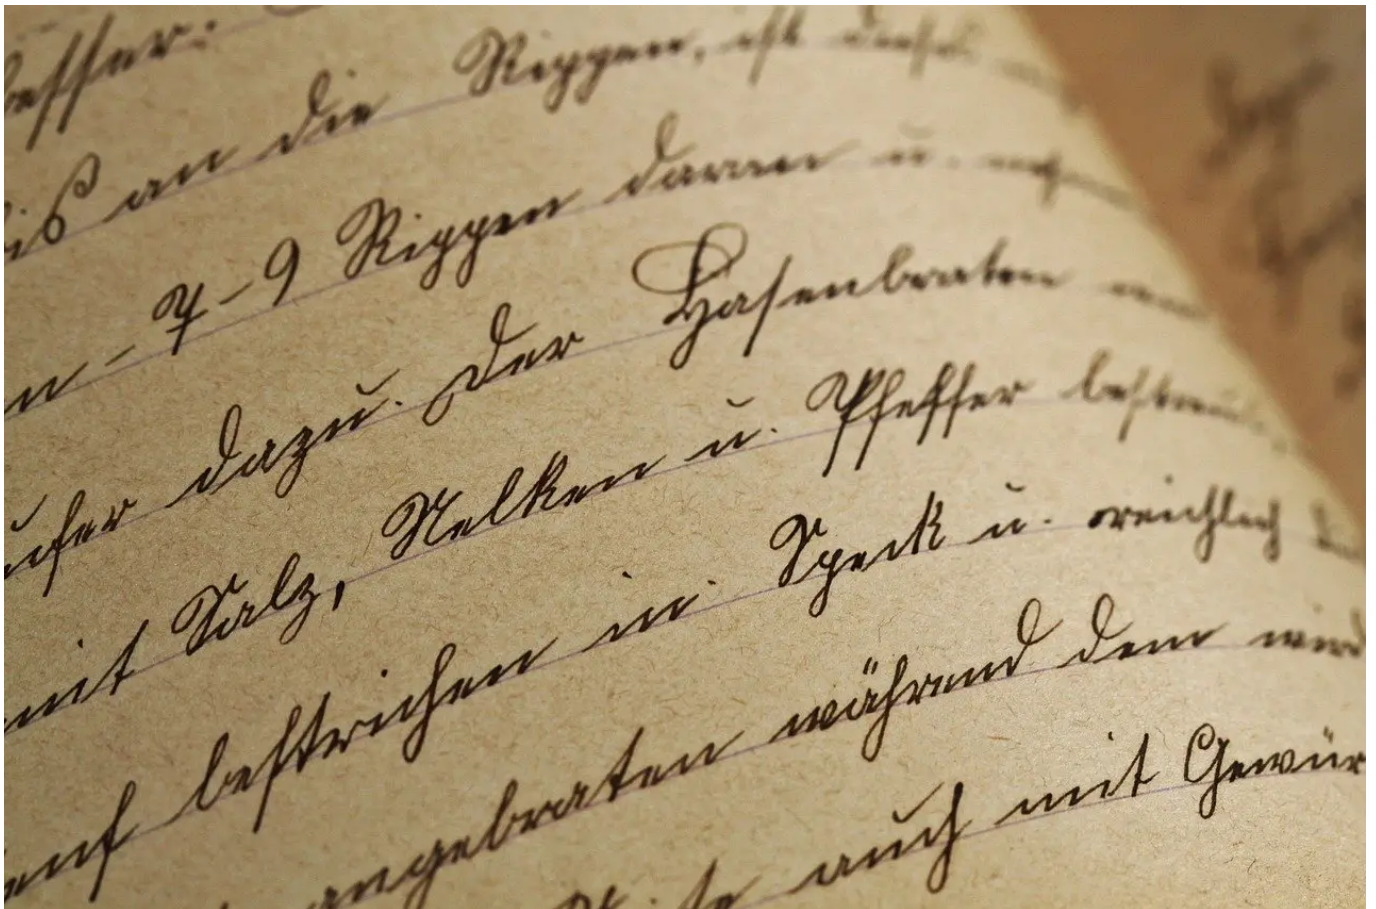 besser:
bis an die Rippen, ist dieses
n – 7–9 Rippen daran u.
Läufer dazu. Der Hasenbraten
mit Salz, Nelken u. Pfeffer bestreut
Senf bestrichen in Speck u. reichlich
angebraten während dem wird
auch mit Gewür